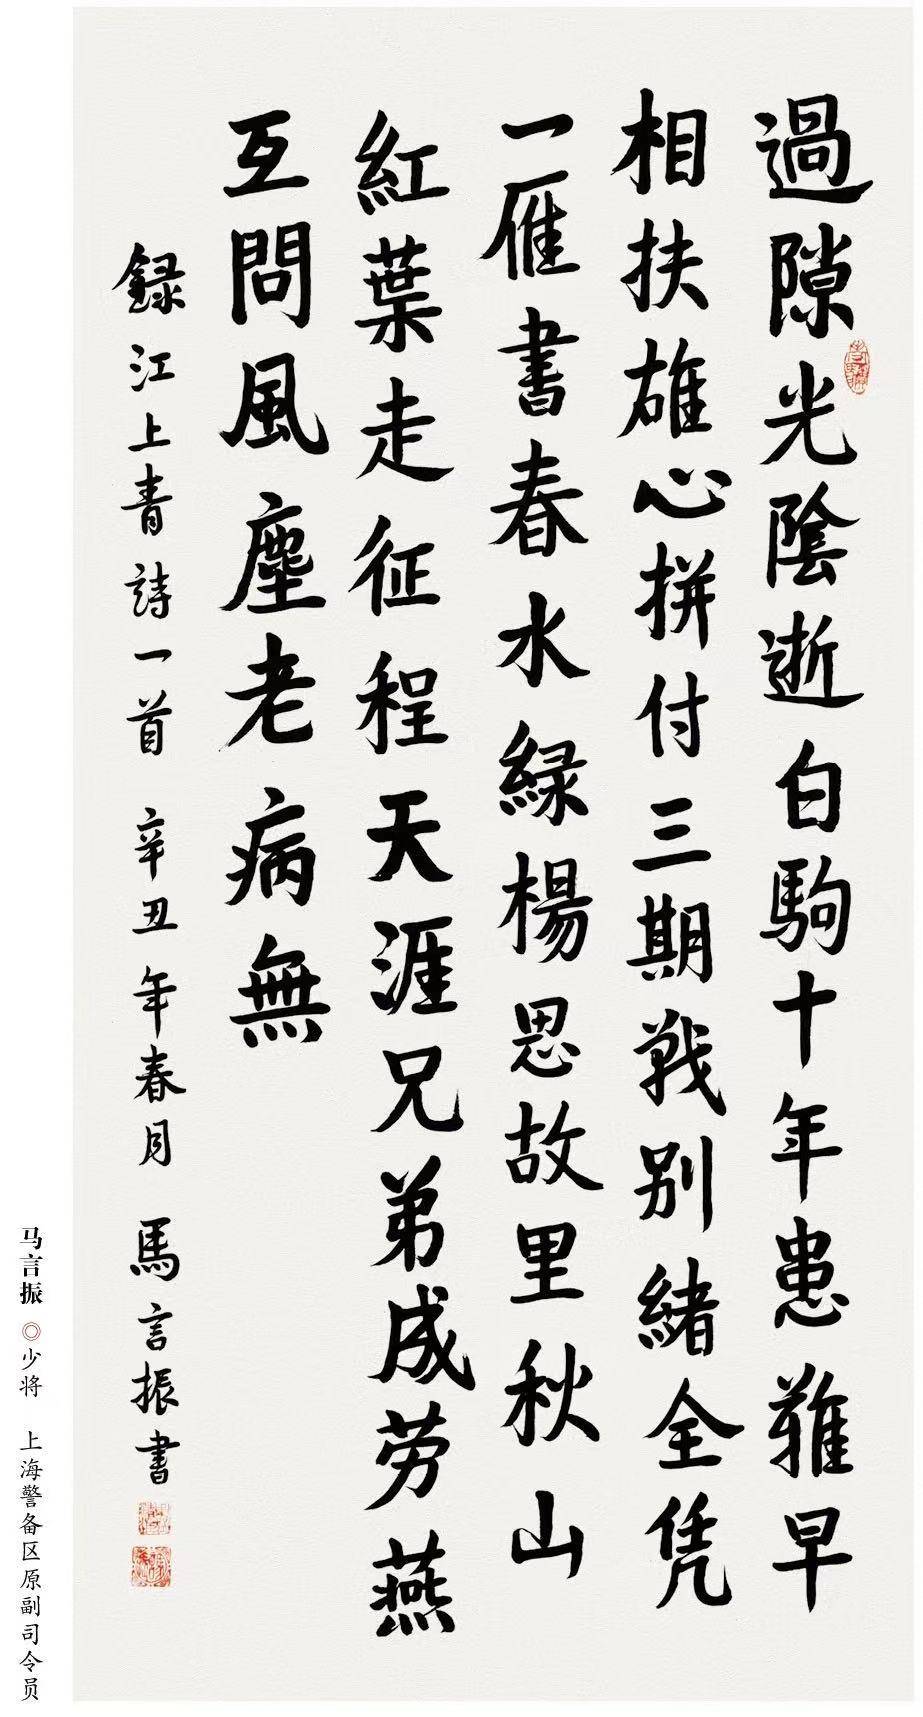 過隙光陰逝白駒十年患難早
相扶雄心拼付三期戰別緒全凭
一雁書春水緑楊思故里秋山
紅葉走征程天涯兄弟成劳燕
互問風塵老病無
録江上青詩一首 辛丑年春月 馬言振書
马言振 ◎ 少将 上海警备区原副司令员